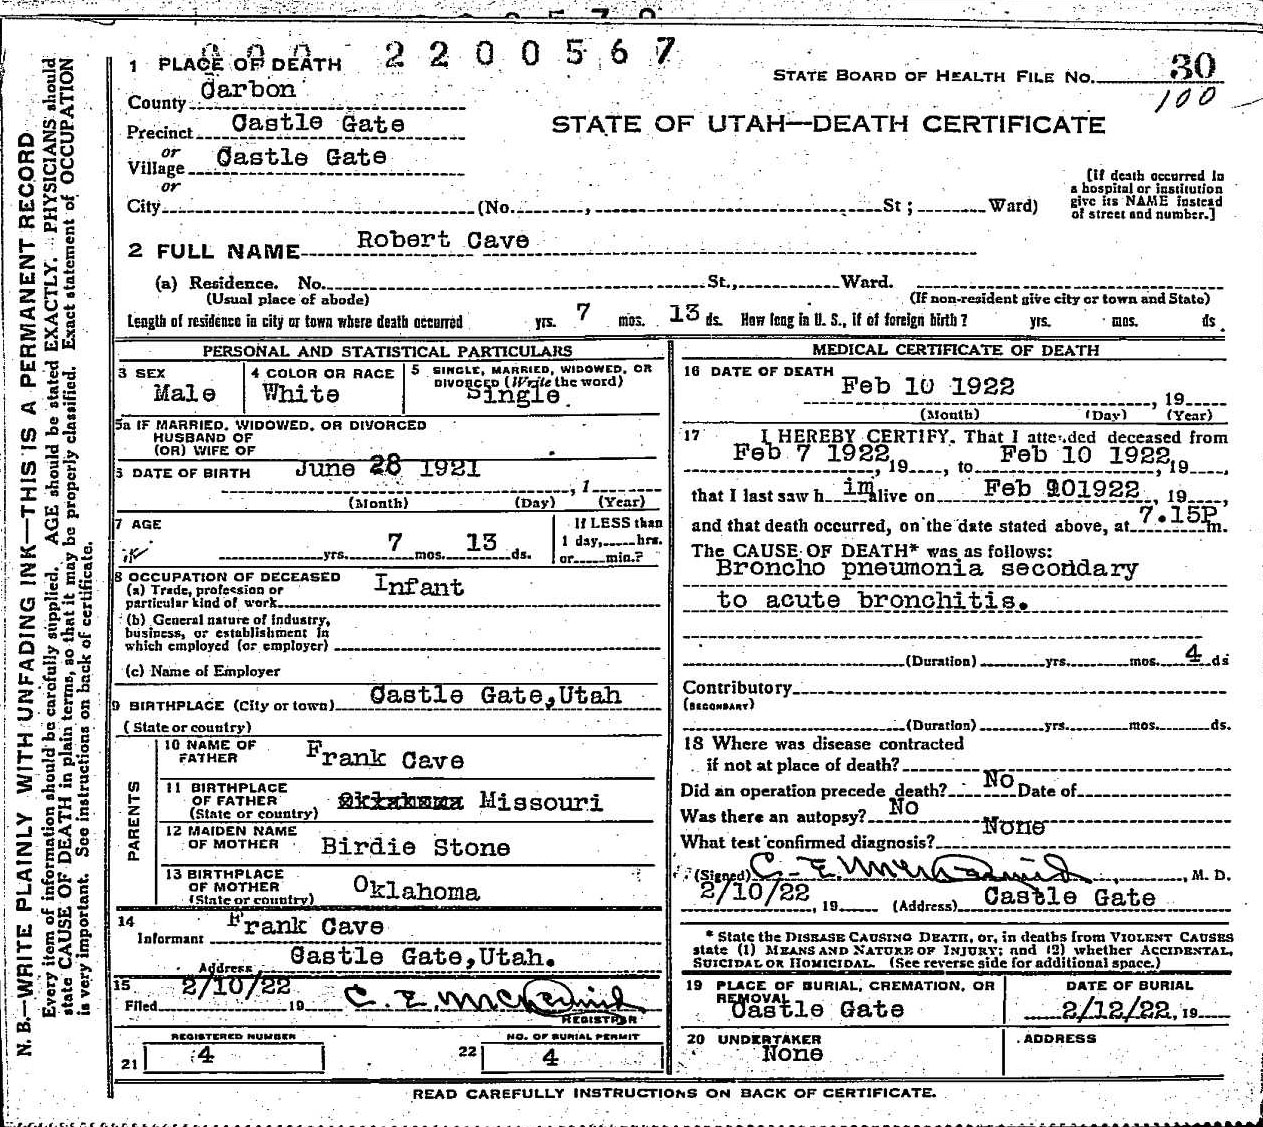 2200567
1 PLACE OF DEATH
STATE BOARD OF HEALTH FILE NO. 30
100
County Carbon
Precinct Castle Gate
STATE OF UTAH—DEATH CERTIFICATE
or
Village Castle Gate
or
City (No. , St; Ward)
[If death occurred in
a hospital or institution
give its NAME instead
of street and number.]
2 FULL NAME Robert Cave
(a) Residence. No. St., Ward.
(Usual place of abode) (If non-resident give city or town and State)
Length of residence in city or town where death occurred yrs. 7 mos. 13 ds. How long in U. S., if of foreign birth? yrs. mos. ds.
PERSONAL AND STATISTICAL PARTICULARS
3 SEX
Male
4 COLOR OR RACE
White
5 SINGLE, MARRIED, WIDOWED, OR
DIVORCED (Write the word)
Single.
5a IF MARRIED, WIDOWED, OR DIVORCED
HUSBAND OF
(OR) WIFE OF
6 DATE OF BIRTH June 28 1921
, 1
(Month) (Day) (Year)
7 AGE
yrs. 7 mos. 13 ds.
If LESS than
1 day, hrs.
or min.?
8 OCCUPATION OF DECEASED
(a) Trade, profession or
particular kind of work Infant
(b) General nature of Industry,
business, or establishment in
which employed (or employer)
(c) Name of Employer
9 BIRTHPLACE (City or town) Castle Gate,Utah
(State or country)
PARENTS
10 NAME OF
FATHER Frank Cave
11 BIRTHPLACE
OF FATHER
(State or country) Missouri
12 MAIDEN NAME
OF MOTHER Birdie Stone
13 BIRTHPLACE
OF MOTHER
(State or country) Oklahoma
14
Informant Frank Cave
Address Castle Gate,Utah.
15
Filed 2/10/22 19 C. E. McDermid
REGISTRAR
REGISTERED NUMBER
21 4
NO. OF BURIAL PERMIT
22 4
MEDICAL CERTIFICATE OF DEATH
16 DATE OF DEATH
Feb 10 1922
, 19
(Month) (Day) (Year)
17 I HEREBY CERTIFY, That I attended deceased from
Feb 7 1922, 19 , to Feb 10 1922, 19 ,
that I last saw h im alive on Feb 101922, 19 ,
and that death occurred, on the date stated above, at 7.15P m.
The CAUSE OF DEATH* was as follows:
Broncho pneumonia secondary
to acute bronchitis.
(Duration) yrs. mos. 4 ds
Contributory
(SECONDARY)
(Duration) yrs. mos. ds.
18 Where was disease contracted
if not at place of death?
Did an operation precede death? No Date of
Was there an autopsy? No
What test confirmed diagnosis? None
(Signed) C. E. McDermid, M. D.
2/10/22, 19 (Address) Castle Gate
* State the DISEASE CAUSING DEATH, or, in deaths from VIOLENT CAUSES
state (1) MEANS AND NATURE OF INJURY; and (2) whether ACCIDENTAL,
SUICIDAL OR HOMICIDAL. (See reverse side for additional space.)
19 PLACE OF BURIAL, CREMATION, OR
REMOVAL
Castle Gate
DATE OF BURIAL
2/12/22, 19
20 UNDERTAKER
None
ADDRESS
READ CAREFULLY INSTRUCTIONS ON BACK OF CERTIFICATE.
N. B.—WRITE PLAINLY WITH UNFADING INK—THIS IS A PERMANENT RECORD
Every item of information should be carefully supplied. AGE should be stated EXACTLY. PHYSICIANS should
state CAUSE OF DEATH in plain terms, so that it may be properly classified. Exact statement of OCCUPATION
is very important. See instructions on back of certificate.